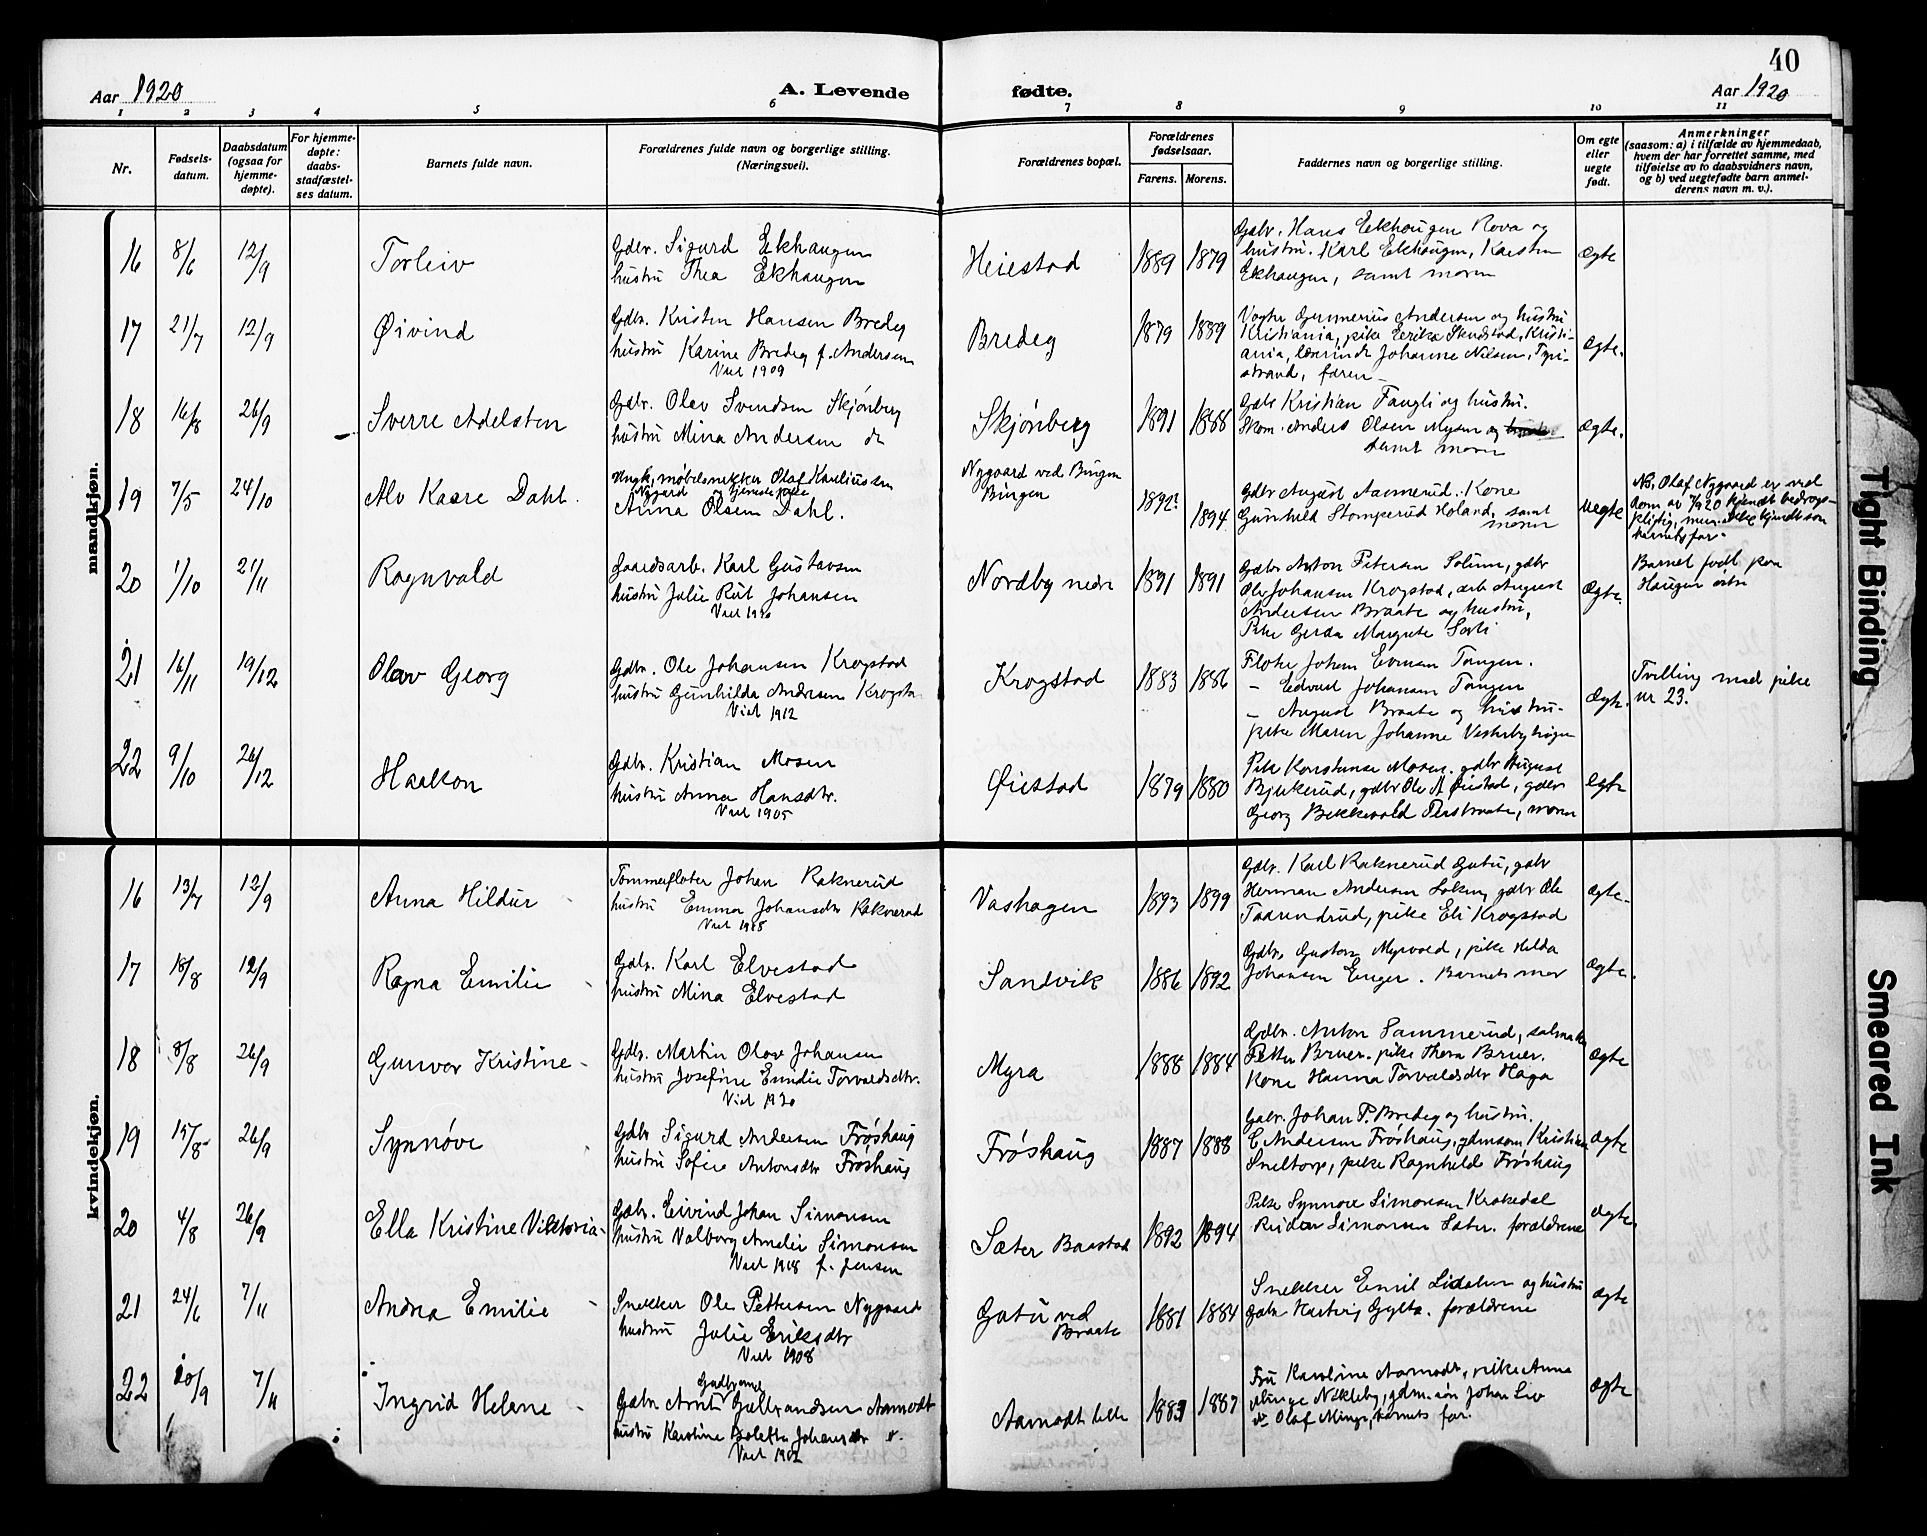 40
Aar 1920
A. Levende
fødte.
Aar 1920
1 2 3 4 5 6 7 8 9 10 11
Nr.
Fødsels-
datum.
Daabsdatum
(ogsaa for
hjemme-
døpte).
For hjemme-
døpte:
daabs-
stadfæstel-
ses datum.
Barnets fulde navn.
Forældrenes fulde navn og borgerlige stilling.
(Næringsvei).
Forældrenes bopæl.
Forældrenes
fødselsaar.
Farens. Morens.
Faddernes navn og borgerlige stilling.
Om egte
eller
uegte
født.
Anmerkninger
(saasom: a) i tilfælde av hjemmedaab,
hvem der har forrettet samme, med
tilføielse av to daabsvidners navn,
og b) ved uegtefødte barn anmel-
derens navn m. v.).
mandkjøn.
16 8/6 12/9 Torleiv
Gdbr. Sigurd Ekhaugen
hustru Thea Ekhaugen
Heiestad 1889 1879
Gdbr. Hans Ekhougen Rova og
hustru. Karl Ekhaugen, Karsten
Ekhaugen, samt moren
Ægte
17 21/7 12/9 Øivind
Gdbr. Kristen Hansen Bredeg
hustru Karine Bredeg f. Andersen
Viet 1909
Bredeg 1879 1889
Vogter Gunnerius Andersen og hustru
Kristiania, pike Eerika Skudstad, Kristi-
ania, lærerinde Johanne Nielsen, Tyri-
strand, faren
Ægte.
18 16/8 26/9 Sverre Adelsten
Gdbr. Olav Svendsen Skjønberg
hustru Mina Andersen do
Skjønberg 1891 1888
Gdbr Kristian Fangli og hustru.
Skom. Anders Olsen Mysen og
samt moren
Ægte.
19 7/5 24/10 Alv Kaare Dahl.
Ungk. møbelsnekker Olaf Kareliussen
Nygaard og tjenestepike
Anna Olsen Dahl.
Nygaard ved Bingen
Bingen
1892? 1894
Gdbr August Aamerud. Kone
Gunhild Stomperud Holand, samt
moren
Uegte
Nb, Olaf Nygaard er ved
dom av 7/9 20 kjendt bedrags-
pligtig, men ikke kjendt som
barnets far.
20 1/10 21/11 Ragnvald
Gaardsarb. Karl Gustavsen
hustru Julie Rut Johansen
Viet 1920
Nordby nedre 1891 1891
Gdbr Anton Petersen Solum, gdbr
Ole Johansen Krogstad, arb August
Andersen Braate og hustru,
Pike Gerda Margrete Sorli
Ægte.
Barnet født paa
Haugen østre
21 16/11 19/12 Olav Georg
Gdbr. Ole Johansen Krogstad
hustru Gunhilda Andersen Krogsta
Viet 1912
Krogstad 1883 1886
Fløter Johan Evensen Tangen.
— Edvard Johansen Tangen
— August Braate og hustru-
pike Maren Johanne Vesterbyhagen
Ægte.
Tvilling med pike
nr 23.
22 9/10 26/12 Haakon
Gdbr. Kristian Mosen
hustru Anna Hansdtr.
Viet 1905
Øiestad 1879 1880
Pike Konstanse Mosen. gdbr August
Bjukerud, gdbr Ole A Øiestad, gdbr
Georg Bekkevold Perstraate, moren
Ægte
kvindekjøn.
16 13/7 12/9 Anna Hildur
Tømmerfløter Johan Raknerud
hustru Emma Johansdtr Raknerud
Viet 1918
Vashagen 1893 1899
Gdbr. Karl Raknerud Gatu, gdbr
Herman Andersen Loken, gdbr Ole
Taarundrud, pike Eli Krogstad
Ægte.
17 18/8 12/9 Ragna Emilie
Gdbr. Karl Elvestad
hustru Mina Elvestad
Sandvik 1886 1892
Gdbr. Gustav Myrvold, pike Hilda
Johansen Enger. Barnets mor
Ægte.
18 8/8 26/9 Gunvor Kristine
Gdbr. Martin Olav Johansen
hustru Josefine Emilie Torvaldsdtr.
Viet 1920
Myra 1888 1884
Gdbr. Anton Sammerud, salmaker
Petter Bruer. pike Thora Bruer.
Kone Hanna Torvaldsdtr Haga
Ægte
19 15/8 26/9 Synnøve
Gdbr Sigurd Andersen Frøshaug
hustru Sofie Antonsdtr Frøshaug
Frøshaug 1887 1888
Gdbr. Johan P. Bredeg og hustru.
C Andersen Frøshaug, gdmsøn Kristian
Sneltorp, pike Ragnhild Frøshaug
Ægte
20 4/8 26/9 Ella Kristine Viktoria
Gdbr. Eivind Johan Simonsen
hustru Valborg Amelie Simonsen
Viet 1918 f. Jensen
Sæter Baastad 1892 1894
Pike Synnøve Simonsen Krokedal
Reidar Simonsen Sæter. forældrene
Ægte
21 24/6 7/11 Andrea Emilie
Snekker Ole Pettersen Nygaard
hustru Julie Eriksdtr
Viet 1908
Gatu ved
Braate
1881 1884
Snekker Emil Lidalen og hustru
Gdbr Hartvig Gylta. forældrene
Ægte
22 20/9 7/11 Ingrid Helene
Gudbrand
Gdbr. Arnt Gulbrandsen Aamodt
hustru Karoline Bolette Johansdtr
Viet 1912
Aamodt lille 1883 1887
Fru Karoline Aamodt, pike Anna
Minge Nækleby, gdm. søn Johan Lie
do Olaf Minge, barnets far.
Ægte
Tight Binding
Smeared Ink